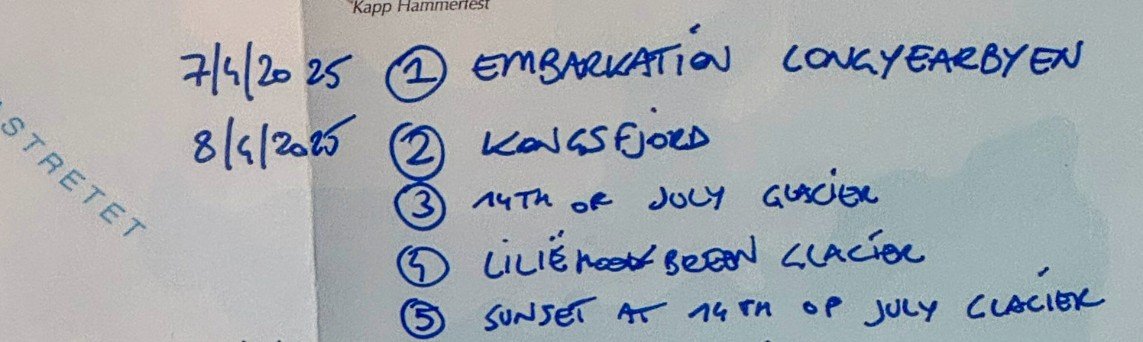 Kapp Hammerfest
7/4/2025 ① EMBARKATION LONGYEARBYEN
8/4/2025 ② KONGSFJORD
③ 14TH OF JULY GLACIER
STRETET
④ LILIË BREEN GLACIER
⑤ SUNSET AT 14TH OF JULY GLACIER